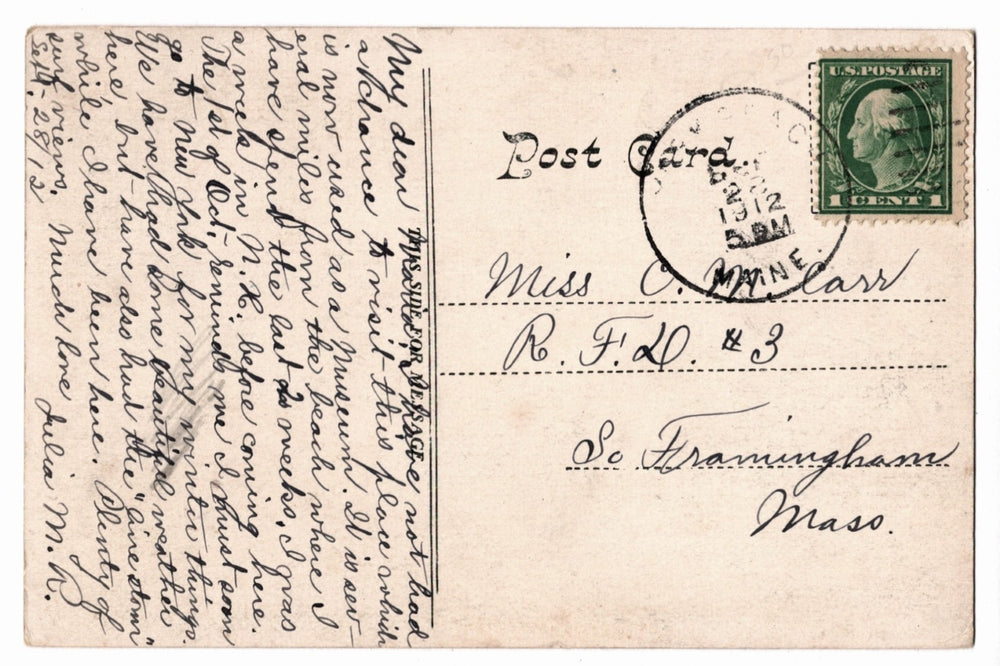 My dear Mollie, I have not had
a chance to visit this place which
is now used as a Museum. It is sev-
eral miles from the beach where I
have spent the last 2½ weeks. I was
a week in N.H. before coming here.
The 1st of Oct. reminds me I must soon
go to New York for my winter things.
We have had some beautiful weather
here, but have also had the "Line storm"
while I have been here. Plenty of
surf views. Much love Julia M. R.
Sept. 28/12
THIS SIDE FOR MESSAGE
Post Card.
U.S. POSTAGE
1 CENT 1
2
1912
5 PM
MAINE
Miss C. M. Carr
R. F. D. #3
So Framingham
Mass.